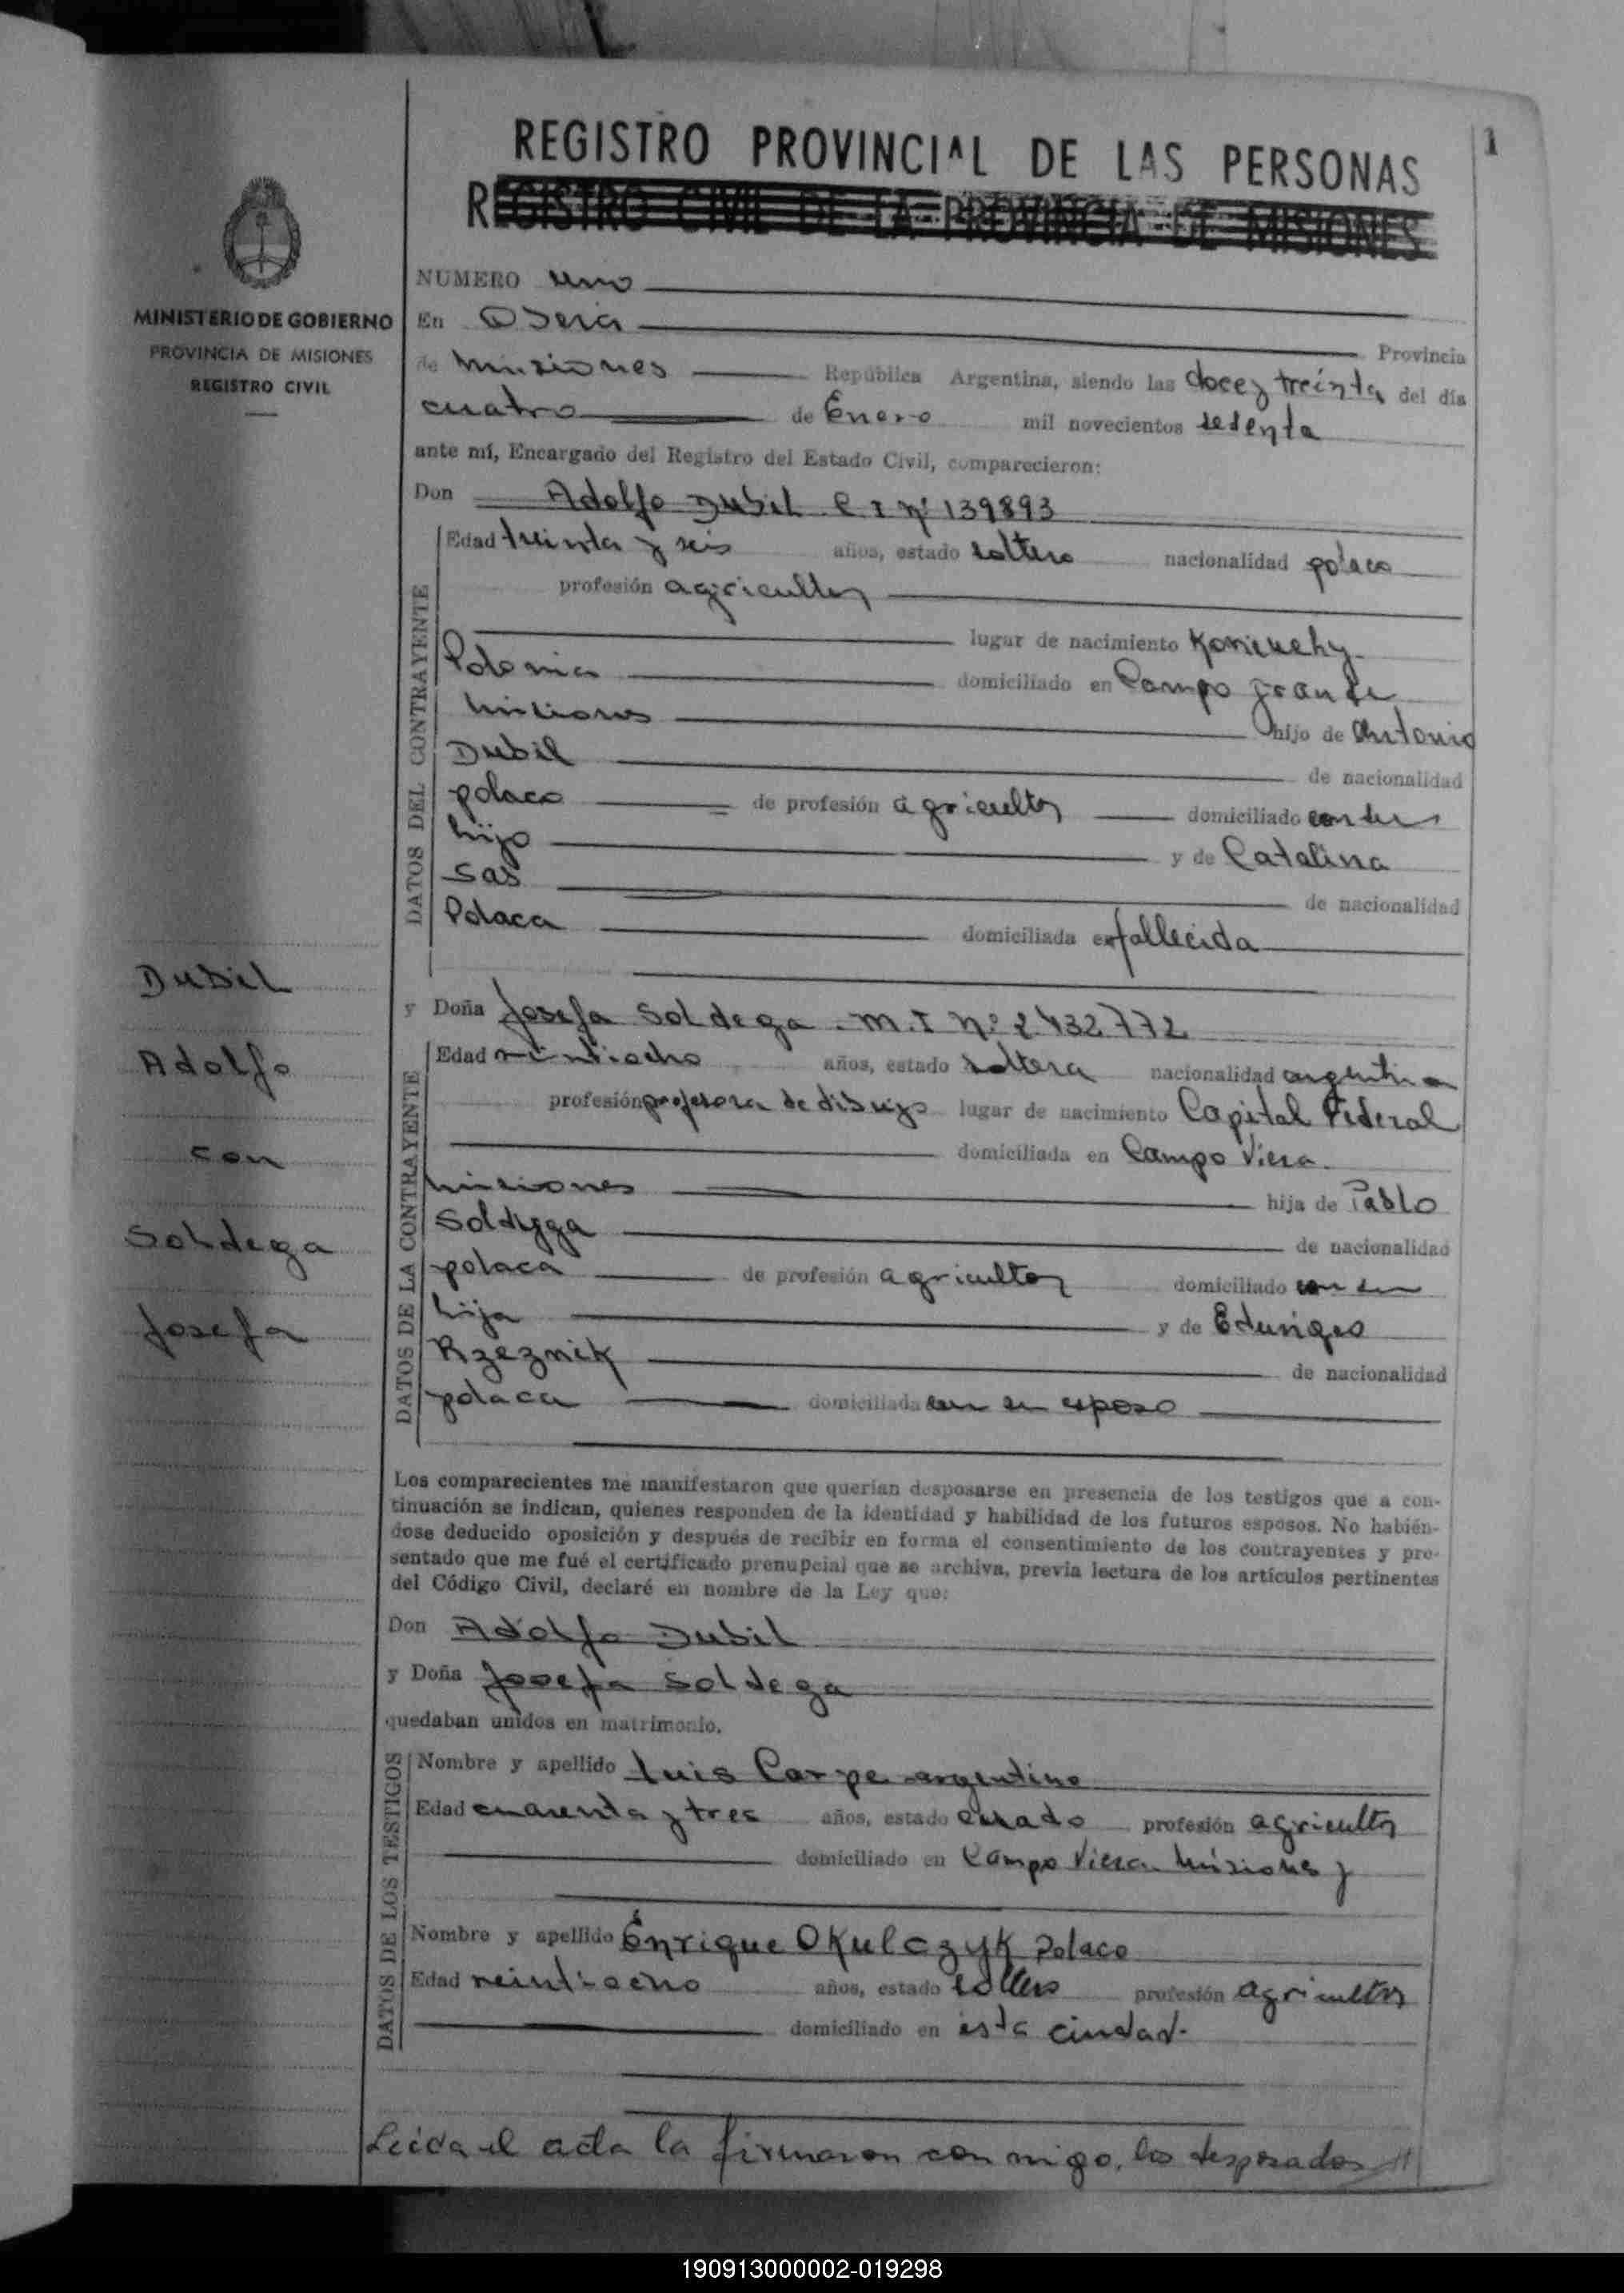 REGISTRO PROVINCIAL DE LAS PERSONAS
1
REGISTRO CIVIL DE LA PROVINCIA DE MISIONES
MINISTERIO DE GOBIERNO
PROVINCIA DE MISIONES
REGISTRO CIVIL
NUMERO uno
En Oberá
Provincia
de Misiones República Argentina, siendo las doce y treinta del día
cuatro de Enero mil novecientos sesenta
ante mí, Encargado del Registro del Estado Civil, comparecieron:
Don Adolfo Dubil C I Nº 139893
DATOS DEL CONTRAYENTE
Edad treinta y seis años, estado soltero nacionalidad polaco
profesión agricultor
lugar de nacimiento
Polonia domiciliado en Campo grande
Misiones hijo de Antonio
Dubil de nacionalidad
polaco de profesión agricultor domiciliado con su
hijo y de Catalina
Sas de nacionalidad
Polaca domiciliada en fallecida
y Doña Josefa Soldega . M. I Nº 2432772
DATOS DE LA CONTRAYENTE
Edad veintiocho años, estado soltera nacionalidad argentina
profesión profesora de dibujo lugar de nacimiento Capital Federal
domiciliada en Campo Viera.
Misiones hija de Pablo
de nacionalidad
polaca de profesión agricultor domiciliado con su
hija y de Eduviges
Rzeznik de nacionalidad
polaca domiciliada con su esposo
Dubil
Adolfo
con
Soldega
Josefa
Los comparecientes me manifestaron que querían desposarse en presencia de los testigos que a con-
tinuación se indican, quienes responden de la identidad y habilidad de los futuros esposos. No habién-
dose deducido oposición y después de recibir en forma el consentimiento de los contrayentes y pre-
sentado que me fué el certificado prenupcial que se archiva, previa lectura de los artículos pertinentes
del Código Civil, declaré en nombre de la Ley que:
Don Adolfo Dubil
y Doña Josefa Soldega
quedaban unidos en matrimonio.
DATOS DE LOS TESTIGOS
Nombre y apellido Luis Carpe argentino
Edad cuarenta y tres años, estado casado profesión agricultor
domiciliado en Campo Viera Misiones y
Nombre y apellido Enrique Okulczyk Polaco
Edad veintiocho años, estado soltero profesión agricultor
domiciliado en esta ciudad.
Leída el acta la firmaron con migo, los desposados //
190913000002-019298